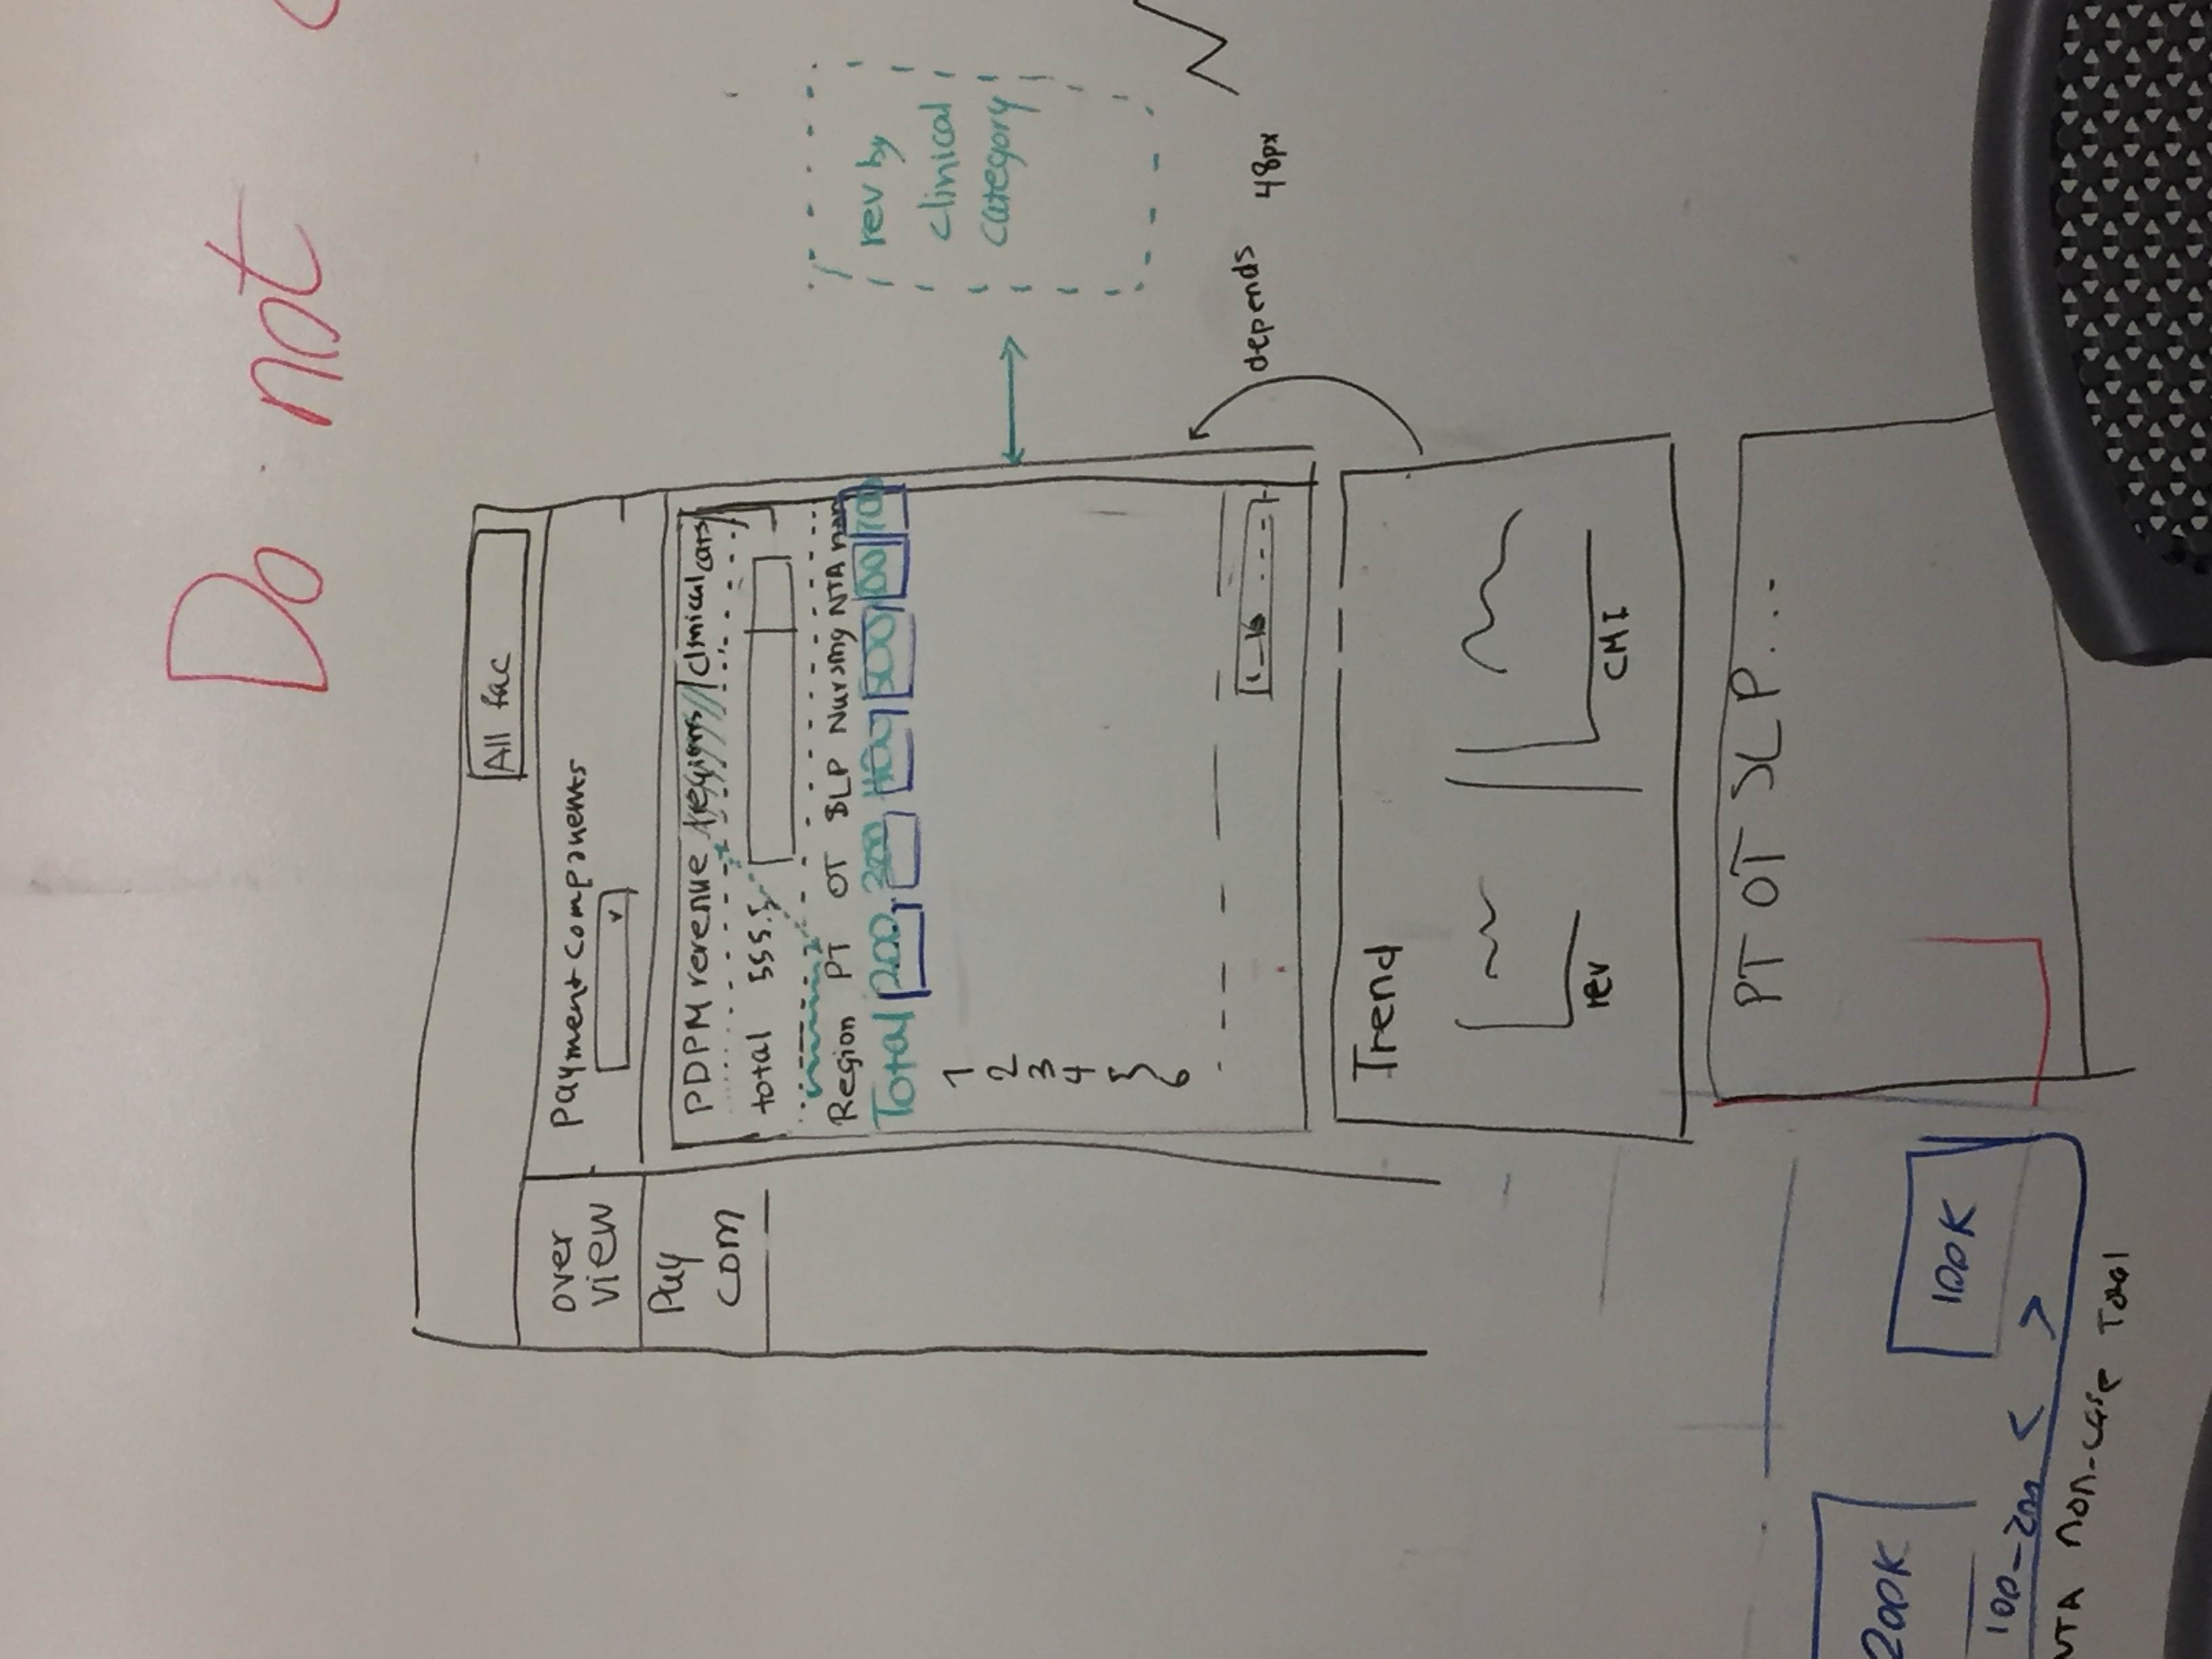 Do not
All fac
over
view
Payment components
Pay
com
PDPM revenue regions clinical cats
total 555.5
Region PT OT SLP Nursing NTA non
Total 200 300 400 500 700
1
2
3
4
5
6
rev by
clinical
category
depends
48px
Trend
rev
CMI
PT OT SLP...
200K
100K
100-200 < >
NTA non-case Total